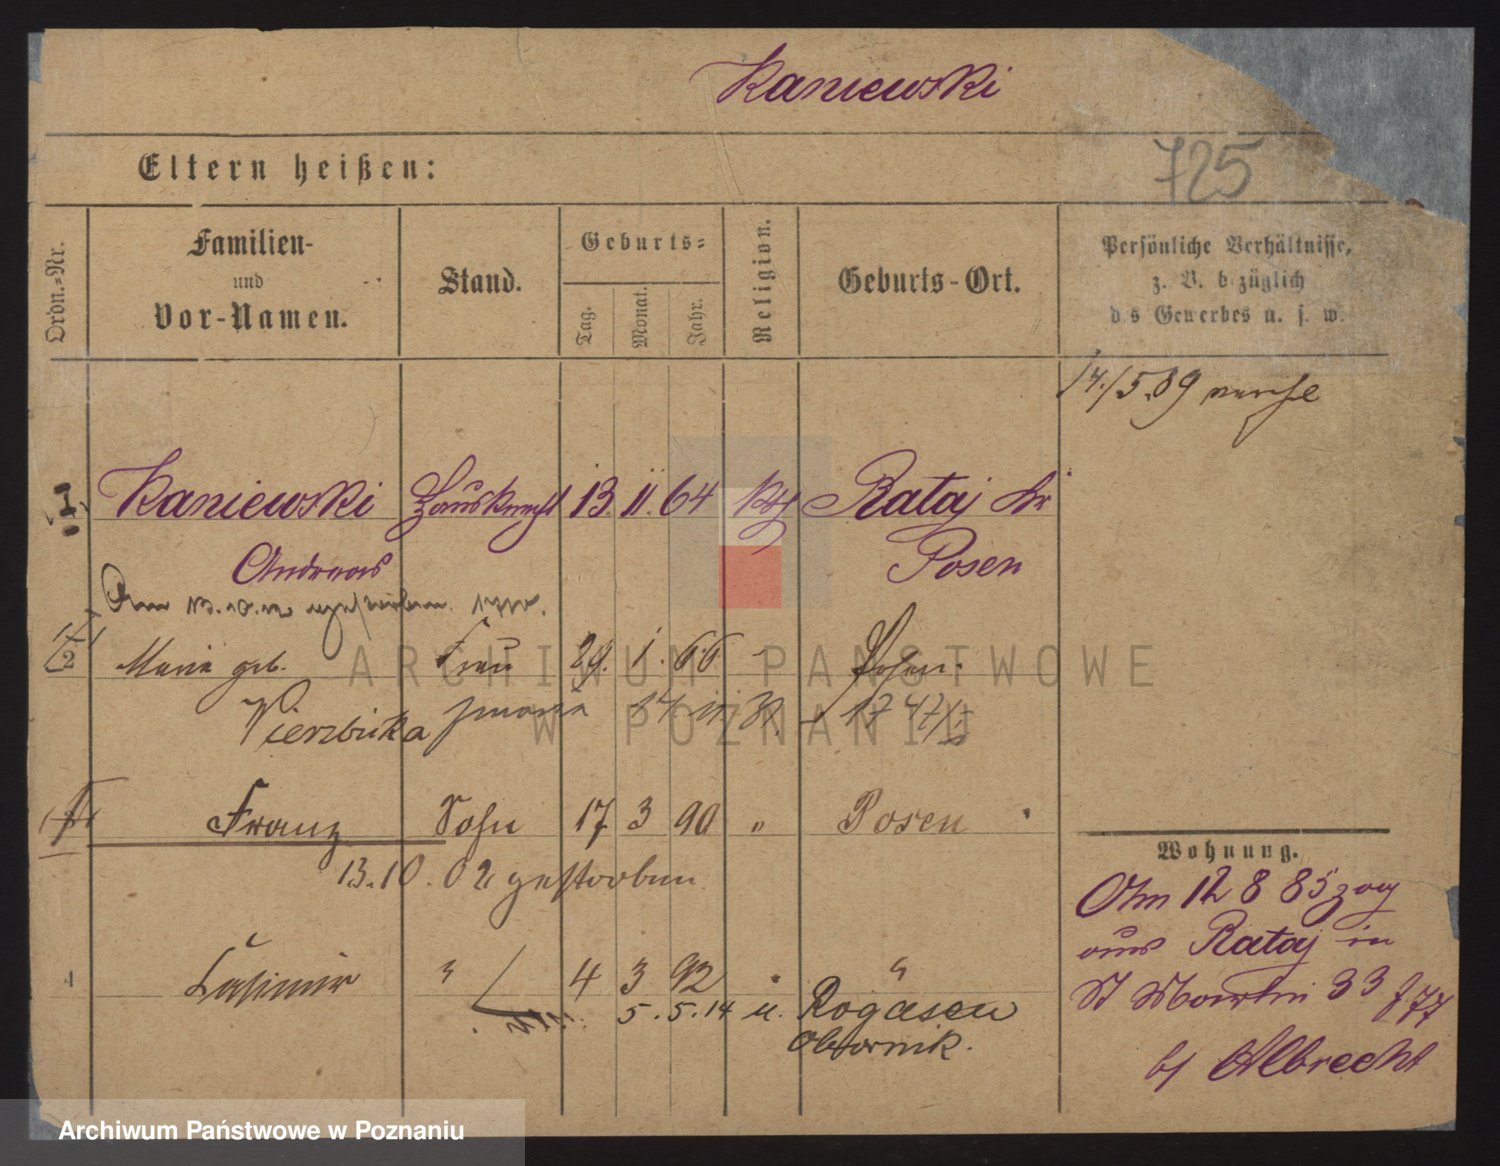 Kaniewski
725
Eltern heißen:
Ordn.-Nr.
Familien-
und
Vor-Namen.
Stand.
Geburts-
Tag.
Monat.
Jahr.
Religion.
Geburts-Ort.
Persönliche Verhältnisse,
z. B. bezüglich
des Gewerbes u. s. w.
14./5.09
I Kaniewski Hausknecht 13. 11. 64 kth Rataj Kr
Andreas Posen
Am 13.10.12 gestorben.
2 Maria geb. Frau 29. 1. 66 Posen.
Wierzbicka
Franz Sohn 17 3 90 " Posen
13.10.02 gestorben.
4 Casimir " 4 3 92 " "
5.5.14 n. Rogasen
Obornik.
Wohnung.
Am 12 8 85 zog
aus Rataj in
St Martin 33
bei Albrecht
ARCHIWUM PAŃSTWOWE
W POZNANIU
Archiwum Państwowe w Poznaniu